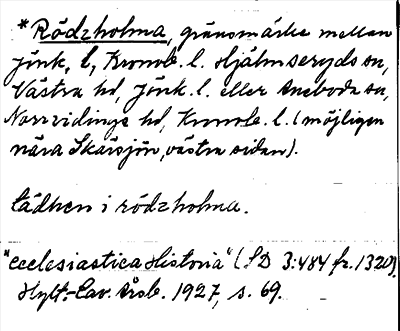 * Rödzholma, gränsmärke mellan
Jönk. l, Kronob. l. Hjälmseryds sn,
Västra hd, Jönk. l. eller Aneboda sn,
Norrvidinge hd, Kronob. l. (möjligen
nära Skärsjön, västra sidan).
tädhen i rödzholma.
"Ecclesiastica Historia" (SD 3:484 fr. 1320).
Hylt.-Cav. Årsb. 1927, s. 69.